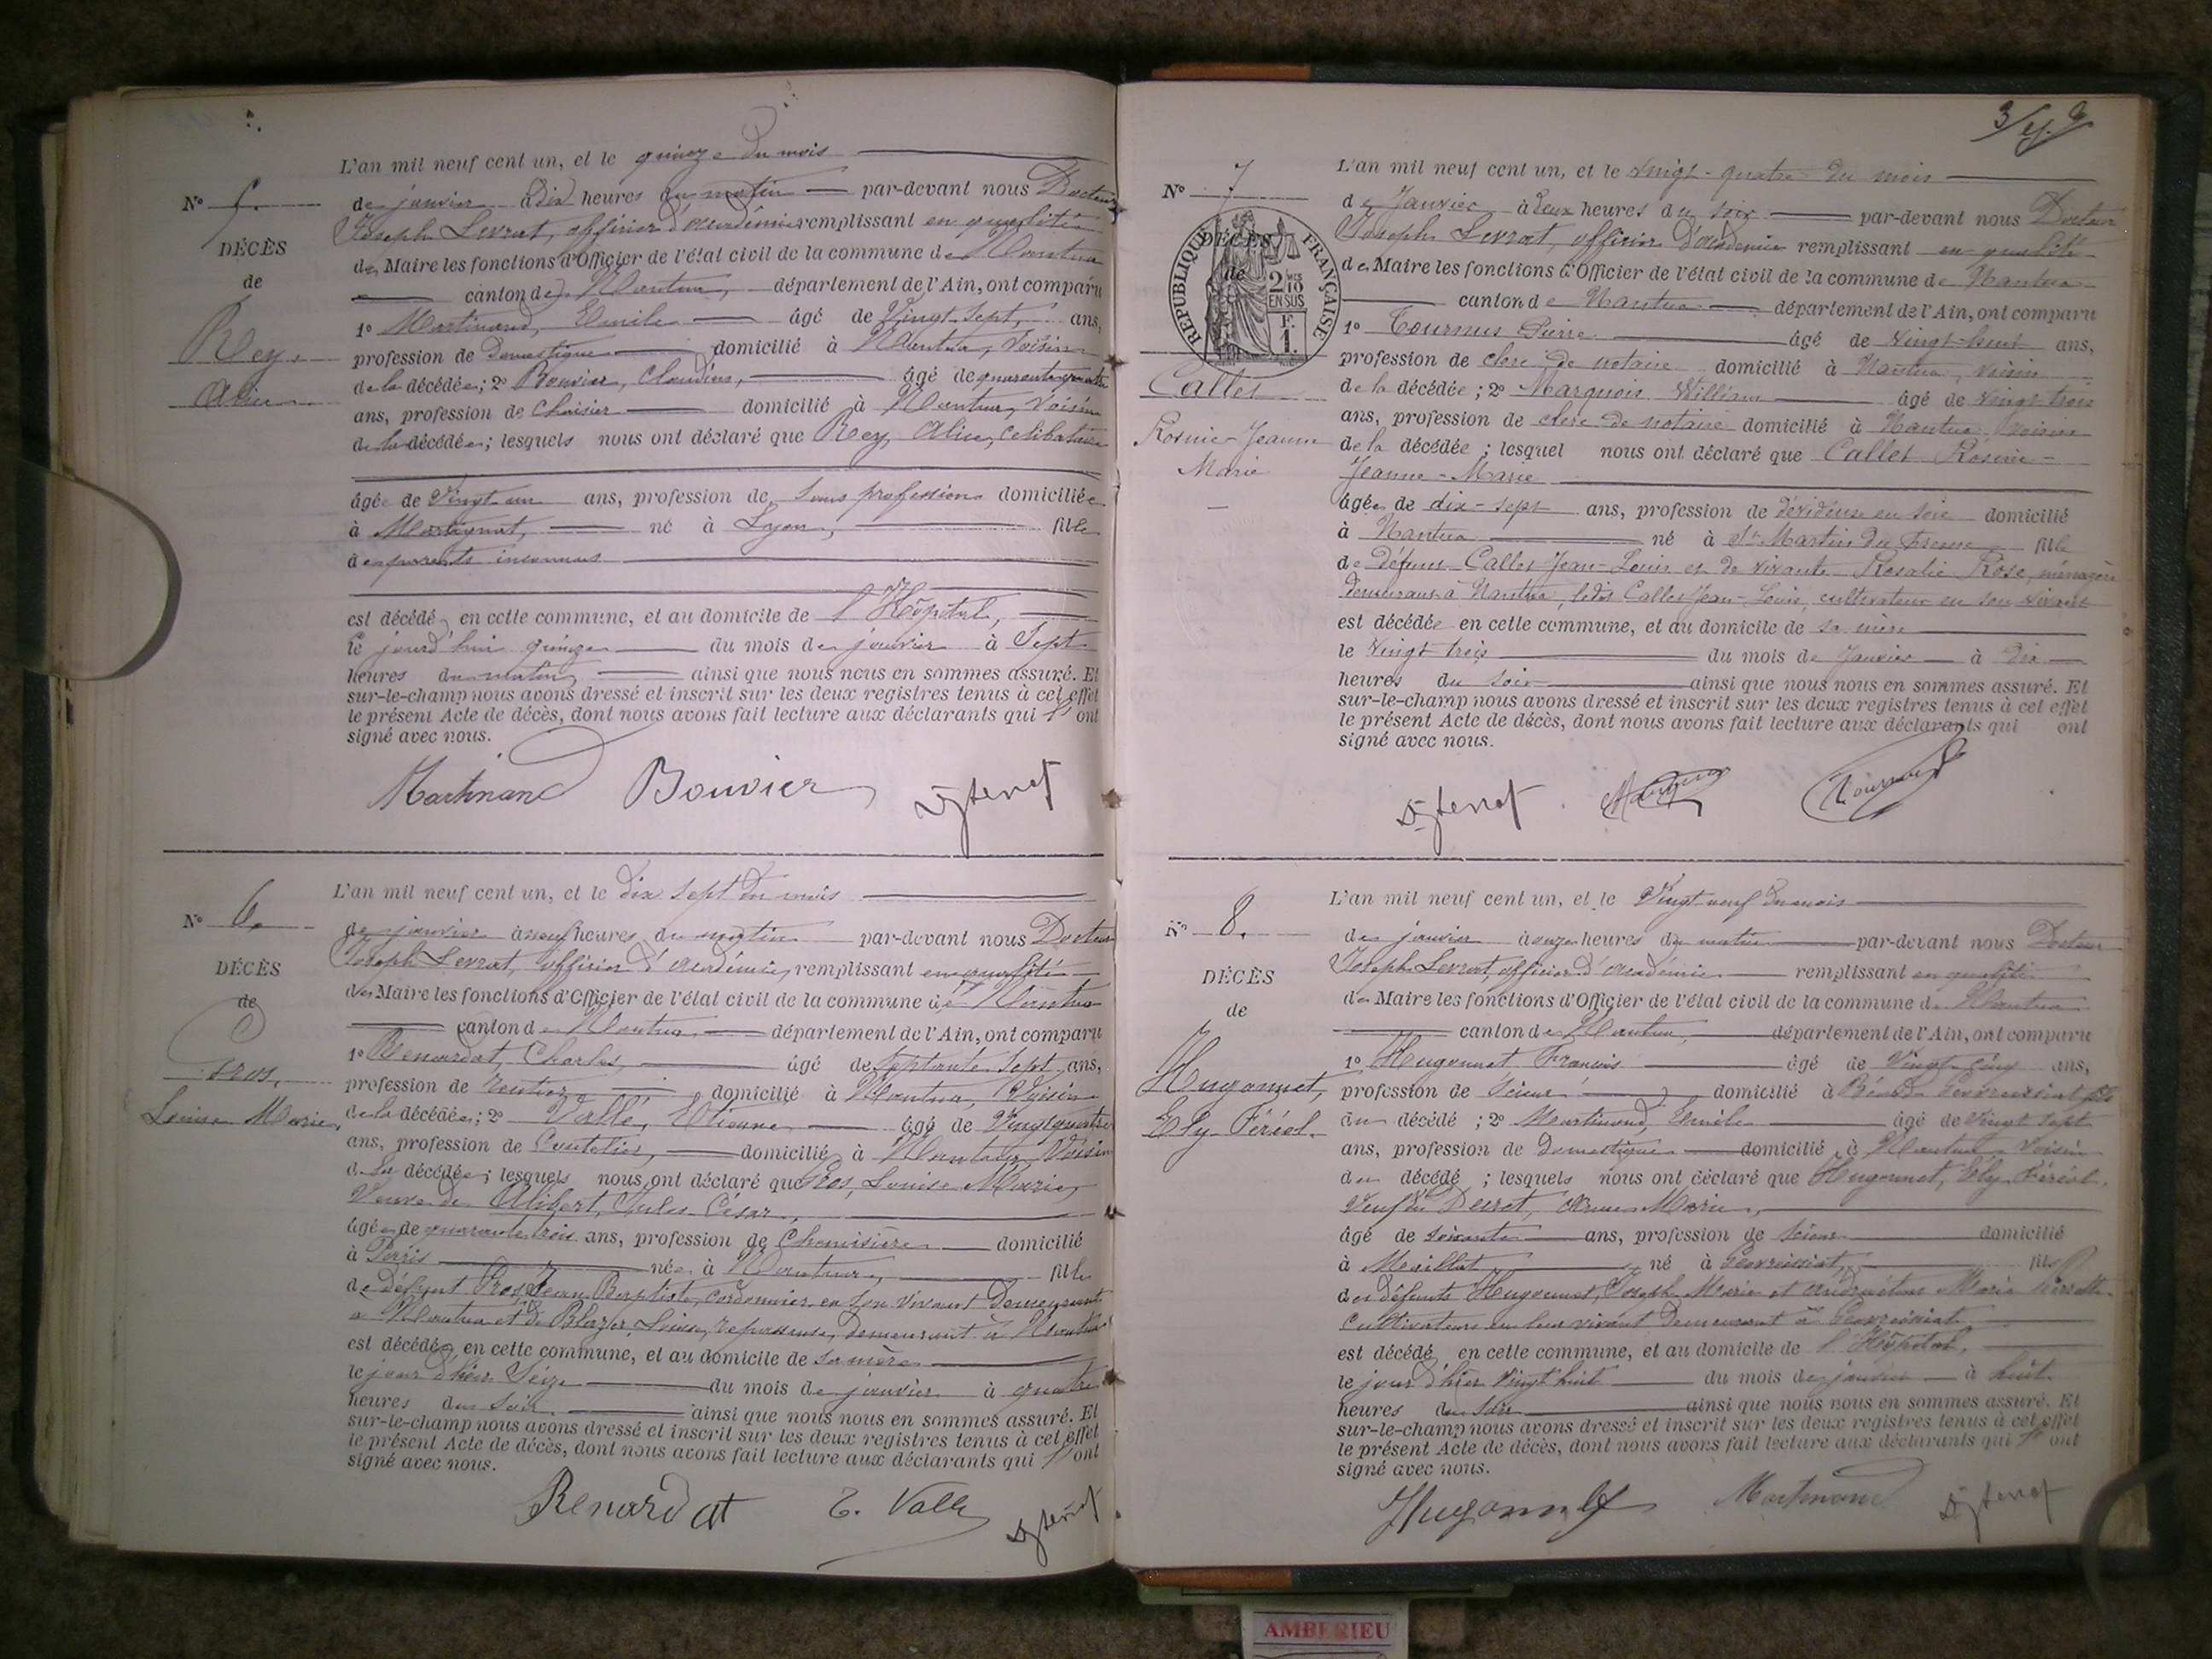 L'an mil neuf cent un, et le quinze du mois
N° 5.
de janvier à dix heures du matin par-devant nous Docteur
Joseph Levrat, officier d'académie remplissant en qualité
DÉCÈS
de Maire les fonctions d'Officier de l'état civil de la commune de Nantua
de
canton de Nantua, département de l'Ain, ont comparu
1° Martinand, Emile âgé de Vingt-sept, ans,
Rey
profession de Domestique domicilié à Nantua, Voisin
de la décédée; 2° Bouvier, Claudius, âgé de quarante quatre
Alice
ans, profession de Chaisier domicilié à Nantua, Voisin
de la décédée; lesquels nous ont déclaré que Rey, Alice, Célibataire
âgée de Vingt-un ans, profession de sans profession domiciliée
à Martignat, né à Lyon, fille
de parents inconnus
est décédé en cette commune, et au domicile de l'Hôpital,
le jourd'hui quinze du mois de janvier à Sept
heures du matin, ainsi que nous nous en sommes assuré. Et
sur-le-champ nous avons dressé et inscrit sur les deux registres tenus à cet effet
le présent Acte de décès, dont nous avons fait lecture aux déclarants qui l'ont
signé avec nous.
Martinand Bouvier
L'an mil neuf cent un, et le dix sept du mois
N° 6.
de janvier à neuf heures du matin par-devant nous Docteur
Joseph Levrat, officier d'académie, remplissant en qualité
DÉCÈS
de Maire les fonctions d'Officier de l'état civil de la commune de Nantua
de
canton de Nantua département de l'Ain, ont comparu
1° Renardat, Charles, âgé de septante sept ans,
Gros,
profession de rentier domicilié à Nantua, Voisin
Louise Marie,
de la décédée; 2° Vallé, Etienne âgé de Vingt quatre
ans, profession de Coutelier, domicilié à Nantua, Voisin
de la décédée; lesquels nous ont déclaré que Gros, Louise Marie,
Veuve de Alibert, Jules César,
âgée de quarante trois ans, profession de Chemisière domicilié
à Paris née à Nantua, fille
de défunt Gros, Jean Baptiste, cordonnier en son vivant demeurant
à Nantua et de Blazer, Louise, repasseuse, demeurant à Nantua
est décédée en cette commune, et au domicile de sa mère
le jour d'hier Seize du mois de janvier à quatre
heures du soir ainsi que nous nous en sommes assuré. Et
sur-le-champ nous avons dressé et inscrit sur les deux registres tenus à cet effet
le présent Acte de décès, dont nous avons fait lecture aux déclarants qui l'ont
signé avec nous.
Renardat E. Vallé
L'an mil neuf cent un, et le vingt-quatre du mois
N° 7
de Janvier à deux heures du soir par-devant nous Docteur
Joseph Levrat, officier d'académie remplissant en qualité
DÉCÈS
de
RÉPUBLIQUE FRANÇAISE
2/10 EN SUS
F. 1.
de Maire les fonctions d'Officier de l'état civil de la commune de Nantua
canton de Nantua département de l'Ain, ont comparu
1° Tournus Pierre âgé de Vingt-huit ans,
profession de clerc de notaire domicilié à Nantua, voisin
Callet
de la décédée; 2° Marquois William âgé de vingt trois
ans, profession de clerc de notaire domicilié à Nantua, voisin
Rosine-Jeanne
Marie
de la décédée; lesquel nous ont déclaré que Callet Rosine-
Jeanne-Marie
âgée de dix-sept ans, profession de dévideuse en soie domicilié
à Nantua né à St Martin du Fresne fille
de défunt Callet Jean-Louis et de vivante Rosalie Rose, ménagère
demeurant à Nantua, ledit Callet Jean-Louis, cultivateur en son vivant
est décédée en cette commune, et au domicile de sa mère
le vingt trois du mois de Janvier à Dix
heures du soir ainsi que nous nous en sommes assuré. Et
sur-le-champ nous avons dressé et inscrit sur les deux registres tenus à cet effet
le présent Acte de décès, dont nous avons fait lecture aux déclarants qui ont
signé avec nous.
L'an mil neuf cent un, et le Vingt neuf du mois
N° 8.
de janvier à onze heures du matin par-devant nous Docteur
Joseph Levrat, officier d'académie remplissant en qualité
DÉCÈS
de Maire les fonctions d'Officier de l'état civil de la commune de Nantua
de
canton de Nantua, département de l'Ain, ont comparu
1° Hugonnet, François âgé de Vingt cinq ans,
Hugonnet,
profession de Scieur domicilié à Béard Geovreissiat, fils
Ely-Féréol.
du décédé; 2° Martinand, Emile âgé de Vingt sept
ans, profession de Domestique domicilié à Nantua Voisin
du décédé; lesquels nous ont déclaré que Hugonnet, Ely-Féréol,
Veuf de Perret, Marie,
âgé de soixante ans, profession de Scieur domicilié
à Maillat né à Geovreissiat, fils
des défunts Hugonnet, Joseph Marie et Marie
Cultivateurs en leur vivant demeurant à Geovreissiat,
est décédé en cette commune, et au domicile de l'Hôpital,
le jour d'hier Vingt huit du mois de janvier à huit
heures du soir ainsi que nous nous en sommes assuré. Et
sur-le-champ nous avons dressé et inscrit sur les deux registres tenus à cet effet
le présent Acte de décès, dont nous avons fait lecture aux déclarants qui l'ont
signé avec nous.
Hugonnet Martinand
AMBERIEU